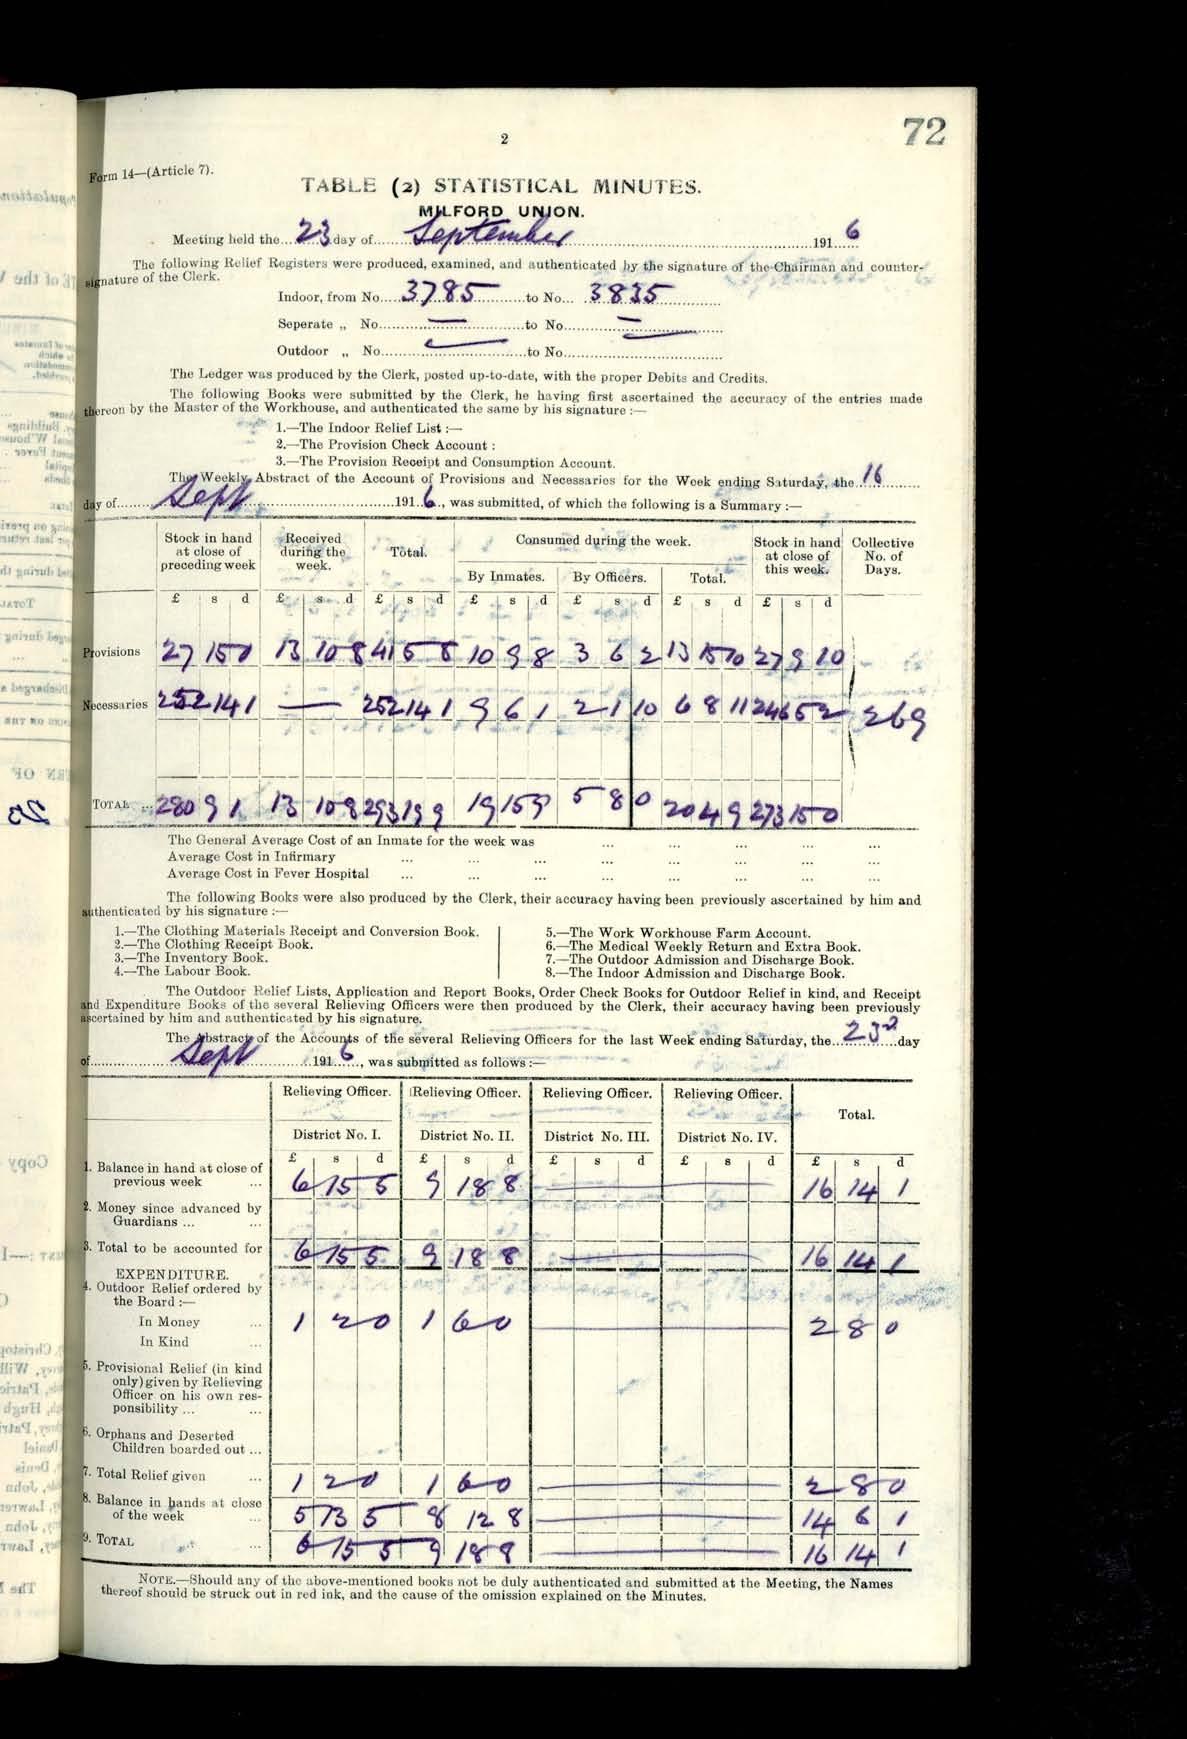 72
2
Form 14—(Article 7).
TABLE (2) STATISTICAL MINUTES.
MILFORD UNION.
Meeting held the 23 day of September 1916
The following Relief Registers were produced, examined, and authenticated by the signature of the Chairman and counter-
signature of the Clerk.
Indoor, from No. 3785 to No. 3835
Seperate „ No. — to No. —
Outdoor „ No. — to No. —
The Ledger was produced by the Clerk, posted up-to-date, with the proper Debits and Credits.
The following Books were submitted by the Clerk, he having first ascertained the accuracy of the entries made
thereon by the Master of the Workhouse, and authenticated the same by his signature :—
1.—The Indoor Relief List :—
2.—The Provision Check Account :
3.—The Provision Receipt and Consumption Account.
The Weekly Abstract of the Account of Provisions and Necessaries for the Week ending Saturday, the 16
day of Sept 1916, was submitted, of which the following is a Summary :—
Stock in hand at close of preceding week | Received during the week. | Total. | Consumed during the week. | Stock in hand at close of this week. | Collective No. of Days.
By Inmates. | By Officers. | Total.
£ s d | £ s d | £ s d | £ s d | £ s d | £ s d | £ s d
Provisions 27 15 0 | 13 10 8 | 41 5 8 | 10 9 8 | 3 6 2 | 13 15 10 | 27 9 10
Necessaries 252 14 1 | — | 252 14 1 | 9 6 1 | 2 1 10 | 6 8 11 | 246 5 2 | 269
TOTAL ... 280 9 1 | 13 10 8 | 293 19 9 | 19 15 9 | 5 8 0 | 20 4 9 | 273 15 0
The General Average Cost of an Inmate for the week was ... ... ... ... ...
Average Cost in Infirmary ... ... ... ... ... ... ... ...
Average Cost in Fever Hospital ... ... ... ... ... ... ... ...
The following Books were also produced by the Clerk, their accuracy having been previously ascertained by him and
authenticated by his signature :—
1.—The Clothing Materials Receipt and Conversion Book.
2.—The Clothing Receipt Book.
3.—The Inventory Book.
4.—The Labour Book.
5.—The Work Workhouse Farm Account.
6.—The Medical Weekly Return and Extra Book.
7.—The Outdoor Admission and Discharge Book.
8.—The Indoor Admission and Discharge Book.
The Outdoor Relief Lists, Application and Report Books, Order Check Books for Outdoor Relief in kind, and Receipt
and Expenditure Books of the several Relieving Officers were then produced by the Clerk, their accuracy having been previously
ascertained by him and authenticated by his signature.
The Abstract of the Accounts of the several Relieving Officers for the last Week ending Saturday, the 23rd day
of Sept 1916, was submitted as follows :—
Relieving Officer. | Relieving Officer. | Relieving Officer. | Relieving Officer. | Total.
District No. I. | District No. II. | District No. III. | District No. IV.
£ s d | £ s d | £ s d | £ s d | £ s d
1. Balance in hand at close of
previous week ... 6 15 5 | 9 18 8 | — | 16 14 1
2. Money since advanced by
Guardians ... ...
3. Total to be accounted for 6 15 5 | 9 18 8 | — | 16 14 1
EXPENDITURE.
4. Outdoor Relief ordered by
the Board :—
In Money ... 1 2 0 | 1 6 0 | — | 2 8 0
In Kind ...
5. Provisional Relief (in kind
only) given by Relieving
Officer on his own res-
ponsibility ... ...
6. Orphans and Deserted
Children boarded out ...
7. Total Relief given ... 1 2 0 | 1 6 0 | — | 2 8 0
8. Balance in hands at close
of the week ... 5 13 5 | 8 12 8 | — | 14 6 1
9. TOTAL ... 6 15 5 | 9 18 8 | — | 16 14 1
NOTE.—Should any of the above-mentioned books not be duly authenticated and submitted at the Meeting, the Names
thereof should be struck out in red ink, and the cause of the omission explained on the Minutes.